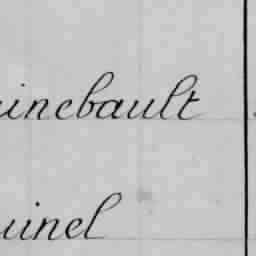 uinebault
uinel